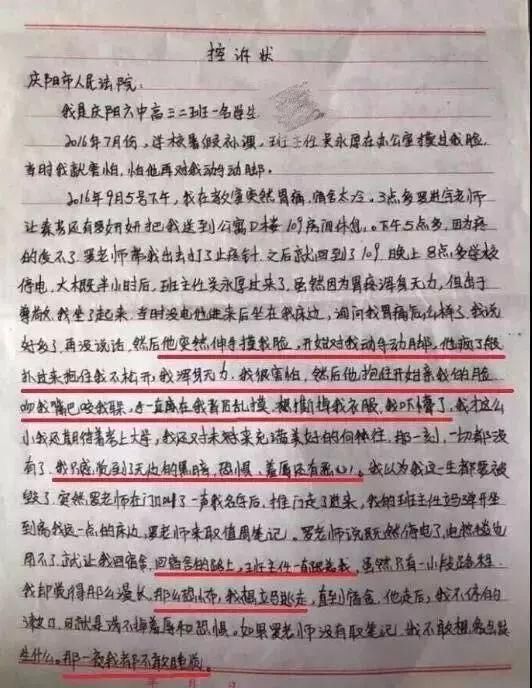 控诉状
庆阳市人民法院:
我是庆阳六中高三二班一名学生
2016年7月份,学校暑假补课,班主任吴永厚在办公室摸过我脸,
当时我就害怕,怕他再对我动手动脚。
2016年9月5号下午,我在教室突然胃痛,宿舍太冷。3点多罗进宇老师
让秦岩还有罗妍妍把我送到公寓D楼109房间休息。下午5点多,因为疼
的受不了,罗老师带我出去打了止疼针,之后就回到了109。晚上8点多学校
停电,大概半小时后,班主任吴永厚过来了,虽然因为胃疼浑身无力,但出于
尊敬,我坐了起来,当时没电他进来后坐在我床边,询问我胃痛后怎么样了,我说
好多了,再没说话,然后他突然伸手摸我脸,开始对我动手动脚,他疯了般
扑过来抱住我不松开,我浑身无力,我很害怕,然后他抱住开始亲我的脸
吻我嘴巴咬我耳朵,手一直在我背后乱摸,想撕掉我衣服,我吓懵了,我才这么
小我还期待着考上大学,我还对未来充满美好的向往,那一刻,一切都没
有了,我只感受到了无边的黑暗,恐惧、羞辱还有恶心。我以为我这一生都要被
毁了,突然罗老师在门口叫了一声我名字后,推门走了进来,我的班主任立马弹开坐
到离我远一点的床边,罗老师来取值周笔记。罗老师说既然停电了,电热毯也
用不了,就让我回宿舍,回宿舍的路上,班主任一直跟着我,虽然只有一小段路程,
我却觉得那么漫长,那么恐怖,我想立马逃走,直到宿舍,他走后,我不停的
漱口,可就是漱不掉羞辱和恐惧。如果罗老师没有取笔记,我不敢想象会发
生什么。那一夜我都不敢睡觉。
年 月 日